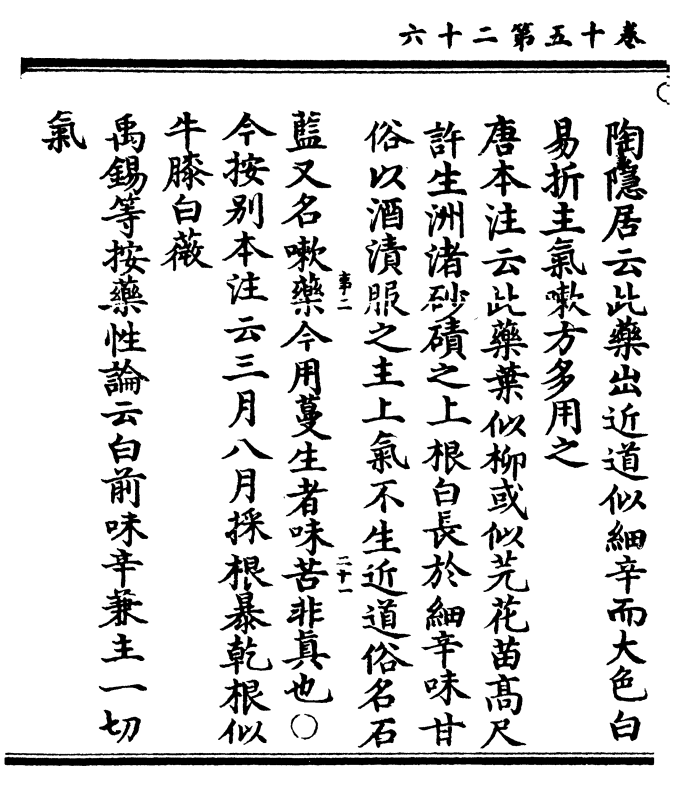 卷十五第二十六
陶隱居云此藥出近道似細辛而大色白
易折主氣嗽方多用之
唐本注云此藥葉似柳或似芫花苗髙尺
許生洲渚砂磧之上根白長於細辛味甘
俗以酒漬服之主上氣不生近道俗名石
第二
二十一
藍又名嗽藥今用蔓生者味苦非眞也〇
今按别本注云三月八月採根暴乾根似
牛膝白薇
禹錫等按藥性論云白前味辛兼主一切
氣